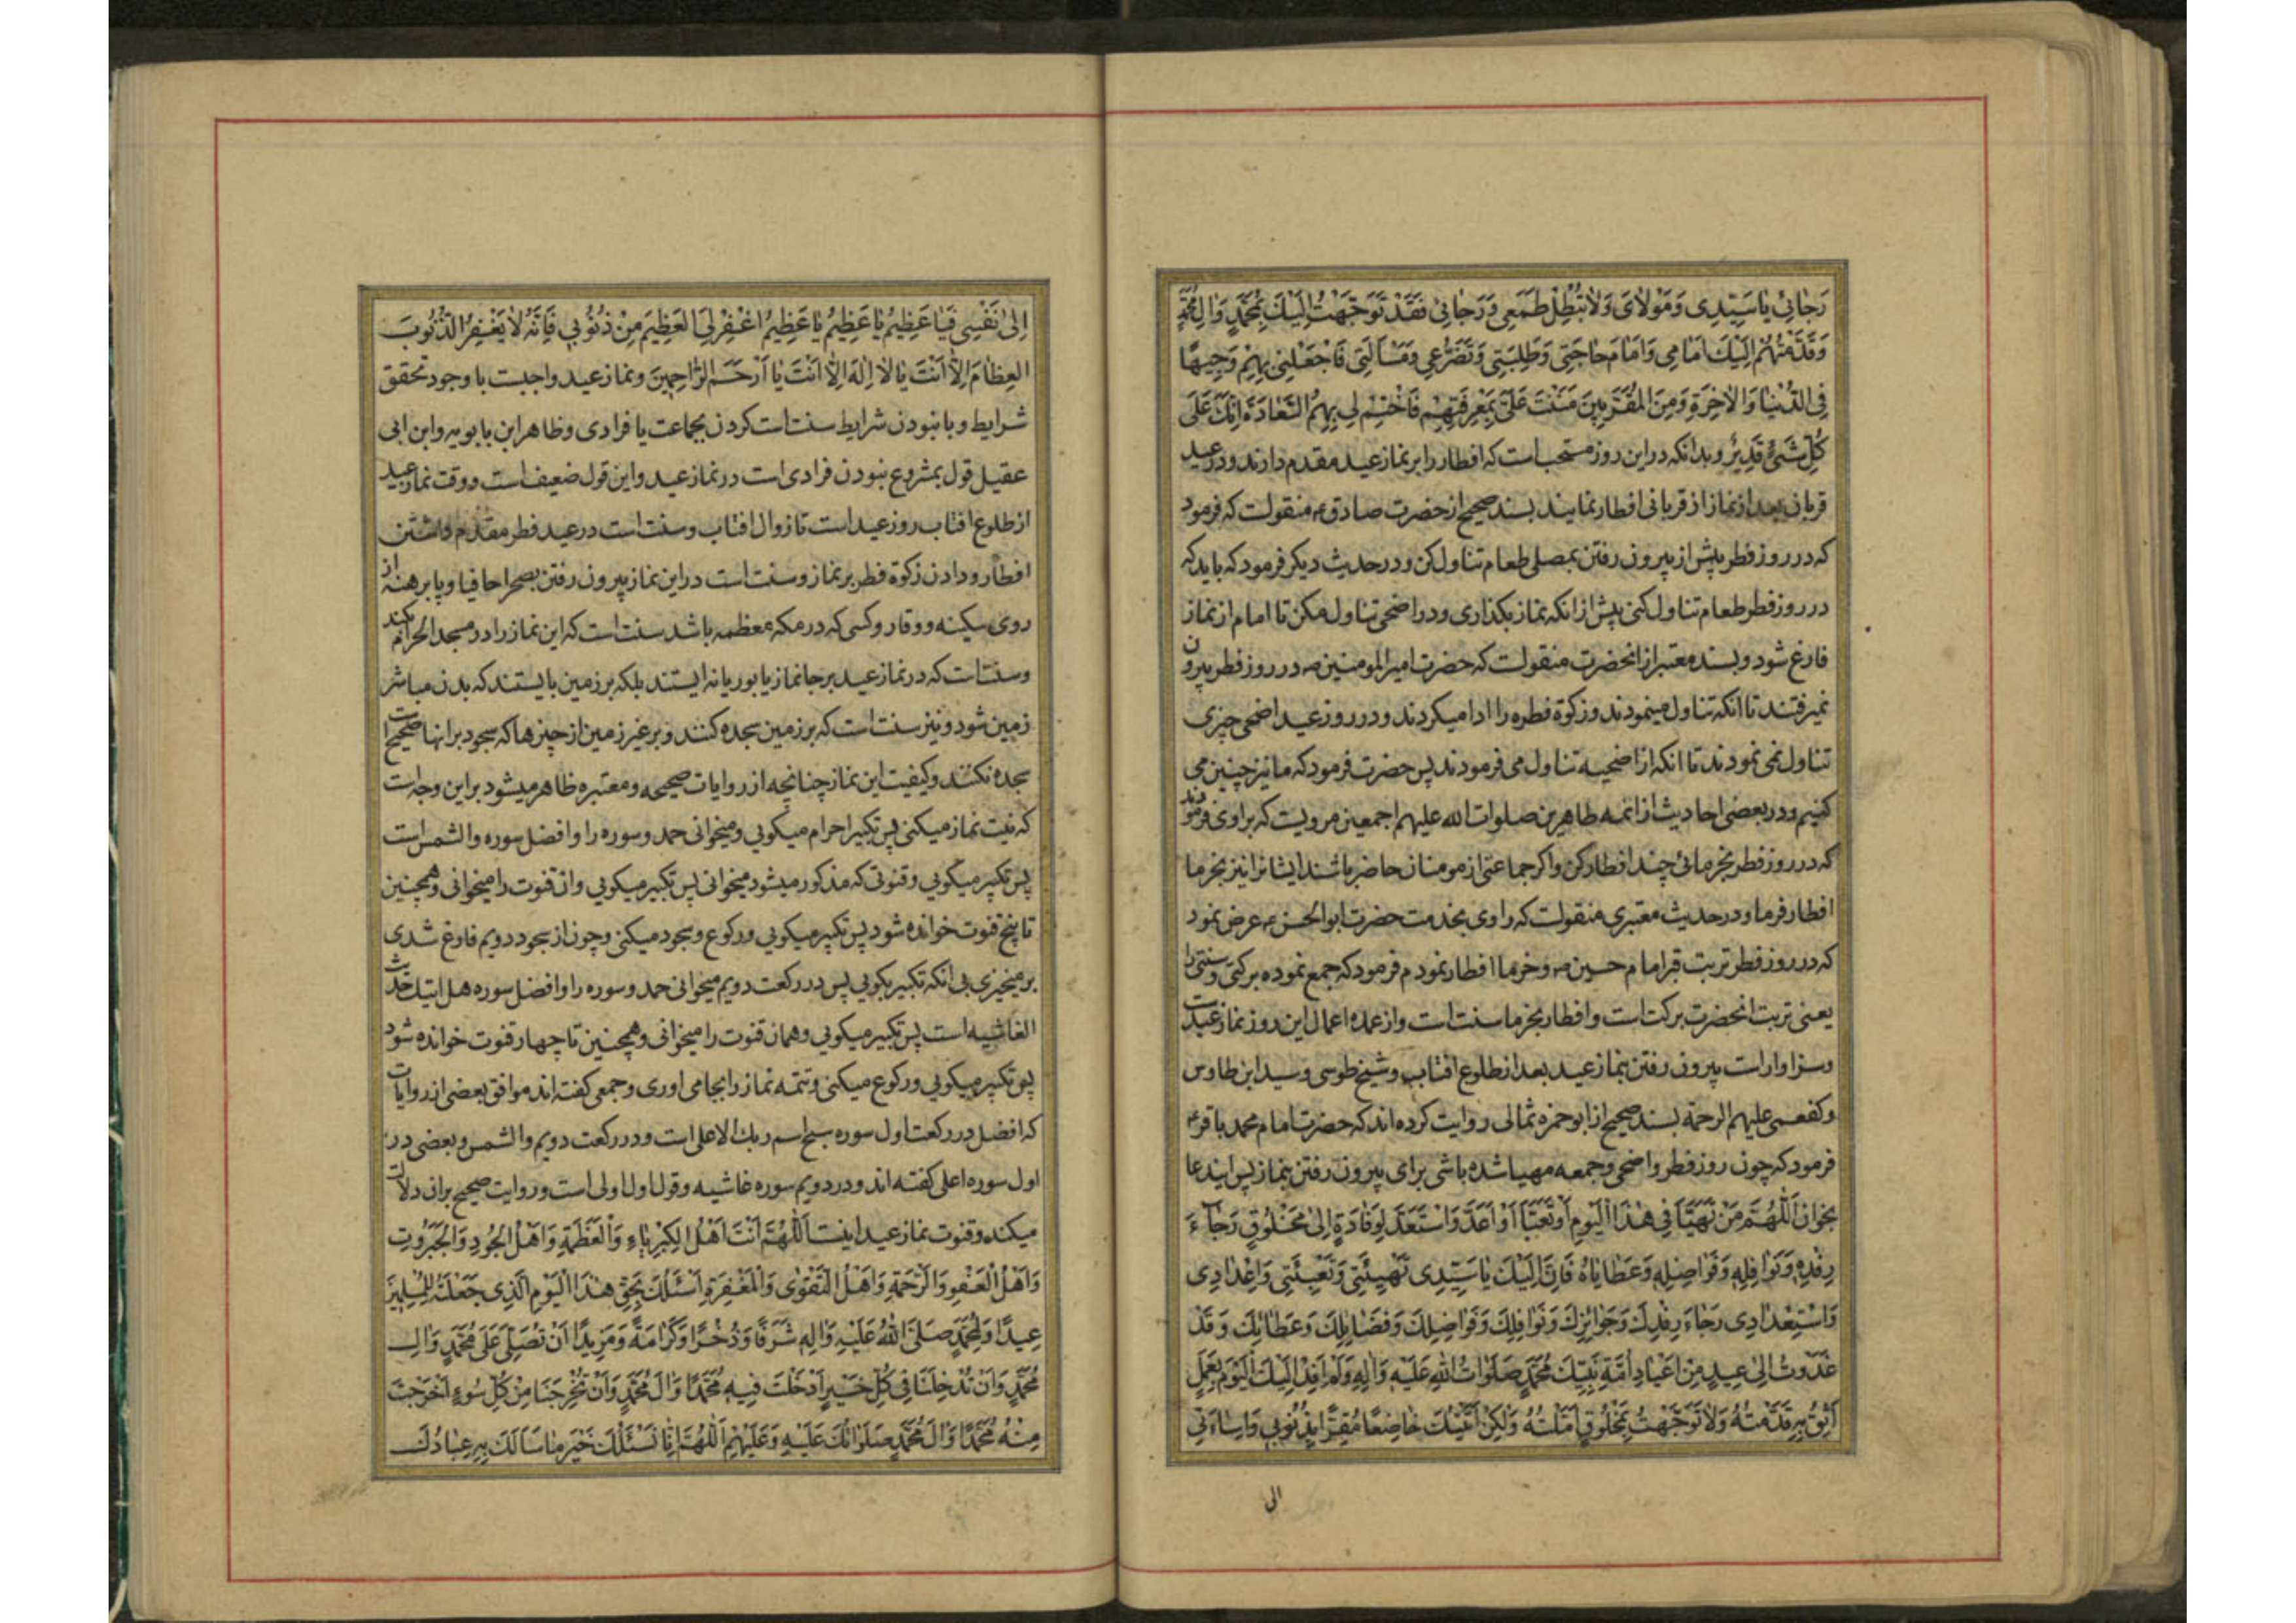 رَجٰائِیْ یٰا سَیِّدِی وَمَوْلاٰیَ وَلاٰ تُبْطِلْ طَمَعِی وَرَجٰائِی فَقَدْ تَوَجَّهْتُ اِلَیْكَ بِمُحَمَّدٍ وَاٰلِ مُحَمَّدٍ
وَقَدَّمْتُهُمْ اِلَیْكَ اَمٰامِی وَاَمٰامَ حٰاجَتِی وَطَلِبَتِی وَتَضَرُّعِی وَمَسْأَلَتِی فَاجْعَلْنِی بِهِمْ وَجِیهًا
فِی الدُّنْیٰا وَالْاٰخِرَةِ وَمِنَ الْمُقَرَّبِینَ مَنَنْتَ عَلَیَّ بِمَعْرِفَتِهِمْ فَاخْتِمْ لِی بِهِمُ السَّعٰادَةَ اِنَّكَ عَلَی
كُلِّ شَیْءٍ قَدِیْرٌ و بدانکه در این روز مستحب است که افطار را بر نماز عید مقدم دارند و در عید
قربان بعد از نماز از قربانی افطار نمایند بسند صحیح از حضرت صادق ع منقولست که فرمود
که در روز فطر پیش از بیرون رفتن بمصلی طعام تناول کن و در حدیث دیکر فرمود که باید که
در روز فطر طعام تناول کنی پیش از انکه نماز بکذاری و در اضحی تناول مکن تا امام از نماز
فارغ شود و بسند معتبر از انحضرت منقولست که حضرت امیر المومنین ص در روز فطر بیرون
نمیرفتند تا انکه تناول مینمودند و زکوة فطره را ادا میکردند و در روز عید اضحی چیزی
تناول نمی نمودند تا انکه از اضحیه تناول می فرمودند پس حضرت فرمود که ما نیز چنین می
کنیم و در بعضی احادیث از ائمه طاهرین صلوات الله علیهم اجمعین مرویست که براوی فرمودند
که در روز فطر بخرمائی چند افطار کن واکر جماعتی از مومنان حاضر باشند ایشانرا نیز بخرما
افطار فرما و در حدیث معتبری منقولست که راوی بخدمت حضرت ابوالحسن ع عرض نمود
که در روز فطر تربت قبر امام حسین ص و خرما افطار نمودم فرمود که جمع نموده برکتی و سنتی را
یعنی تربت انحضرت برکت است و افطار بخرما سنت است و از عمده اعمال این روز نماز عیدست
و سزاوار است بیرون رفتن بنماز عید بعد از طلوع افتاب و شیخ طوسی و سید ابن طاوس
و کفعمی علیهم الرحمة بسند صحیح از ابوحمزه ثمالی روایت کرده اند که حضرت امام محمد باقر ع
فرمود که چون روز فطر و اضحی و جمعه مهیا شده باشی برای بیرون رفتن بنماز پس ایندعا
بخوان اَللّٰهُمَّ مَنْ تَهَیَّأَ فِی هٰذَا الْیَوْمِ اَوْ تَعَبَّأَ اَوْ اَعَدَّ وَاسْتَعَدَّ لِوِفٰادَةٍ اِلیٰ مَخْلُوقٍ رَجٰاءَ
رِفْدِهِ وَنَوٰافِلِهِ وَفَوٰاضِلِهِ وَعَطٰایٰاهُ فَاِنَّ اِلَیْكَ یٰا سَیِّدِی تَهْیِئَتِی وَتَعْبِئَتِی وَاِعْدٰادِی
وَاسْتِعْدٰادِی رَجٰاءَ رِفْدِكَ وَجَوٰائِزِكَ وَنَوٰافِلِكَ وَفَوٰاضِلِكَ وَفَضٰایِلِكَ وَعَطٰائِكَ وَقَدْ
غَدَوْتُ اِلیٰ عِیدٍ مِنْ اَعْیٰادِ اُمَّةِ نَبِیِّكَ مُحَمَّدٍ صَلَوٰاتُ اللهِ عَلَیْهِ وَاٰلِهِ وَلَمْ اَفِدْ اِلَیْكَ الْیَوْمَ بِعَمَلٍ
اَثِقُ بِهِ قَدَّمْتُهُ وَلاٰ تَوَجَّهْتُ بِمَخْلُوقٍ اَمَّلْتُهُ وَلٰكِنْ اَتَیْتُكَ خٰاضِعًا مُقِرًّا بِذُنُوبِی وَاِسٰاءَتِی
الی
اِلیٰ نَفْسِی فَیٰا عَظِیمُ یٰا عَظِیمُ یٰا عَظِیمُ اغْفِرْ لِیَ الْعَظِیمَ مِنْ ذُنُوبِی فَاِنَّهُ لاٰ یَغْفِرُ الذُّنُوبَ
الْعِظٰامَ اِلاّٰ اَنْتَ یٰا لاٰ اِلٰهَ اِلاّٰ اَنْتَ یٰا اَرْحَمَ الرّٰاحِمِینَ و نماز عید واجبست با وجود تحقق
شرایط و با نبودن شرایط سنت است کردن بجماعت یا فرادی و ظاهر ابن بابویه و ابن ابی
عقیل قول بمشروع نبودن فرادی است در نماز عید و این قول ضعیف است و وقت نماز عید
از طلوع افتاب روز عید است تا زوال افتاب و سنت است در عید فطر مقدم داشتن
افطار و دادن زکوة فطر بر نماز و سنت است در این نماز بیرون رفتن بصحرا حافیا و پا برهنه از
روی سکینه و وقار و کسی که در مکه معظمه باشد سنت است که این نماز را در مسجد الحرام کند
و سنت است که در نماز عید بر جا نماز یا بوریا نه ایستند بلکه بر زمین بایستند که بدن مباشر
زمین شود و نیز سنت است که بر زمین سجده کنند و بر غیر زمین از چیزها که سجود بر انها صحیح است
سجده نکنند و کیفیت این نماز چنانچه از روایات صحیحه و معتبره ظاهر میشود بر این وجه است
که نیت نماز میکنی پس تکبیر احرام میکویی و میخوانی حمد و سوره را و افضل سوره والشمس است
پس تکبیر میکویی و قنوتی که مذکور میشود میخوانی پس تکبیر میکویی و ان قنوت را میخوانی و همچنین
تا پنج قنوت خوانده شود پس تکبیر میکویی و رکوع و سجود میکنی و چون از سجود دویم فارغ شدی
برمیخیزی بی انکه تکبیر بکویی پس در رکعت دویم میخوانی حمد و سوره را و افضل سوره هل اتیك حدیث
الغاشیه است پس تکبیر میکویی و همان قنوت را میخوانی و همچنین تا چهار قنوت خوانده شود
پس تکبیر میکویی و رکوع میکنی و تتمه نماز را بجا می اوری و جمعی کفته اند موافق بعضی از روایات
که افضل در رکعت اول سوره سبح اسم ربك الاعلی است و در رکعت دویم والشمس و بعضی در
اول سوره اعلی کفته اند و در دویم سوره غاشیه و قول اول اولی است و روایت صحیح بران دلالت
میکند و قنوت نماز عید اینست اَللّٰهُمَّ اَنْتَ اَهْلُ الْكِبْرِیٰاءِ وَالْعَظَمَةِ وَاَهْلُ الْجُودِ وَالْجَبَرُوتِ
وَاَهْلُ الْعَفْوِ وَالرَّحْمَةِ وَاَهْلُ التَّقْوٰی وَالْمَغْفِرَةِ اَسْئَلُكَ بِحَقِّ هٰذَا الْیَوْمِ الَّذِی جَعَلْتَهُ لِلْمُسْلِمِینَ
عِیدًا وَلِمُحَمَّدٍ صَلَّی اللهُ عَلَیْهِ وَاٰلِهِ شَرَفًا وَذُخْرًا وَكَرٰامَةً وَمَزِیدًا اَنْ تُصَلِّیَ عَلیٰ مُحَمَّدٍ وَاٰلِ
مُحَمَّدٍ وَاَنْ تُدْخِلَنٰا فِی كُلِّ خَیْرٍ اَدْخَلْتَ فِیهِ مُحَمَّدًا وَاٰلَ مُحَمَّدٍ وَاَنْ تُخْرِجَنٰا مِنْ كُلِّ سُوءٍ اَخْرَجْتَ
مِنْهُ مُحَمَّدًا وَاٰلَ مُحَمَّدٍ صَلَوٰاتُكَ عَلَیْهِ وَعَلَیْهِمْ اَللّٰهُمَّ اِنّٰا نَسْئَلُكَ خَیْرَ مٰا سَاَلَكَ بِهِ عِبٰادُكَ